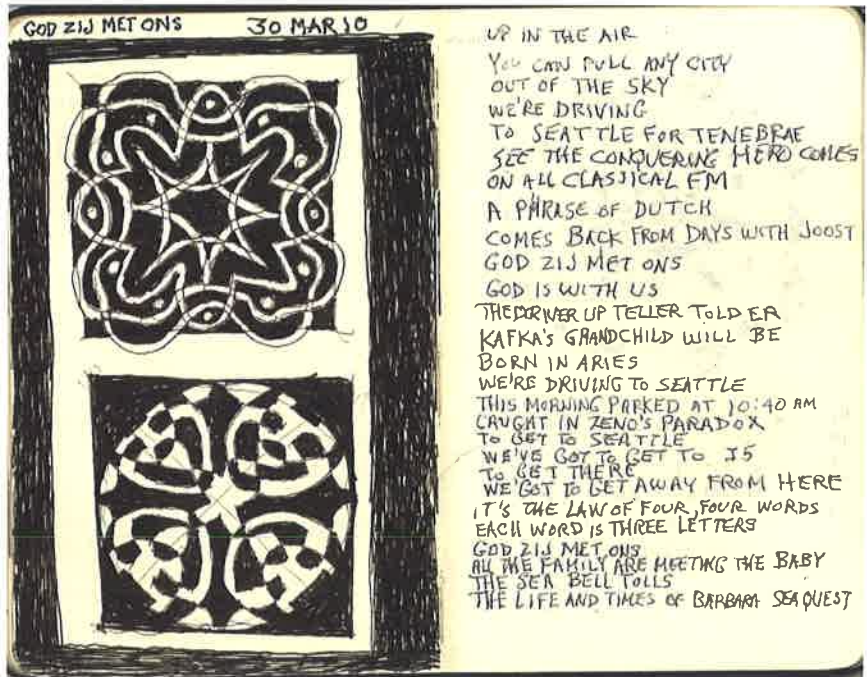 GOD ZIJ MET ONS 30 MAR 10
UP IN THE AIR
YOU CAN PULL ANY CITY
OUT OF THE SKY
WE'RE DRIVING
TO SEATTLE FOR TENEBRAE
SEE THE CONQUERING HERO COMES
ON ALL CLASSICAL FM
A PHRASE OF DUTCH
COMES BACK FROM DAYS WITH JOOST
GOD ZIJ MET ONS
GOD IS WITH US
THE UP TELLER TOLD ER
KAFKA'S GRANDCHILD WILL BE
BORN IN ARIES
WE'RE DRIVING TO SEATTLE
THIS MORNING PARKED AT 10:40 AM
CAUGHT IN ZENO'S PARADOX
TO GET TO SEATTLE
WE'VE GOT TO GET TO I5
TO GET THERE
WE GOT TO GET AWAY FROM HERE
IT'S THE LAW OF FOUR, FOUR WORDS
EACH WORD IS THREE LETTERS
GOD ZIJ MET ONS
ALL THE FAMILY ARE MEETING THE BABY
THE SEA BELL TOLLS
THE LIFE AND TIMES OF BARBARA SEAQUEST